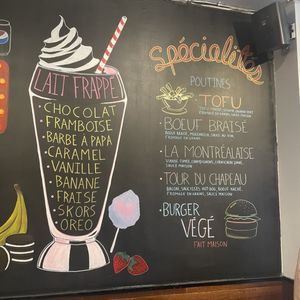 pepsi
LAIT FRAPPÉ
• CHOCOLAT
• FRAMBOISE
• BARBE À PAPA
• CARAMEL
• VANILLE
• BANANE
• FRAISE
• SKORS
• OREO
Spécialités
POUTINES
• TOFU
• BOEUF BRAISÉ
• LA MONTRÉALAISE
• TOUR DU CHAPEAU
• BURGER
VÉGÉ
FAIT MAISON